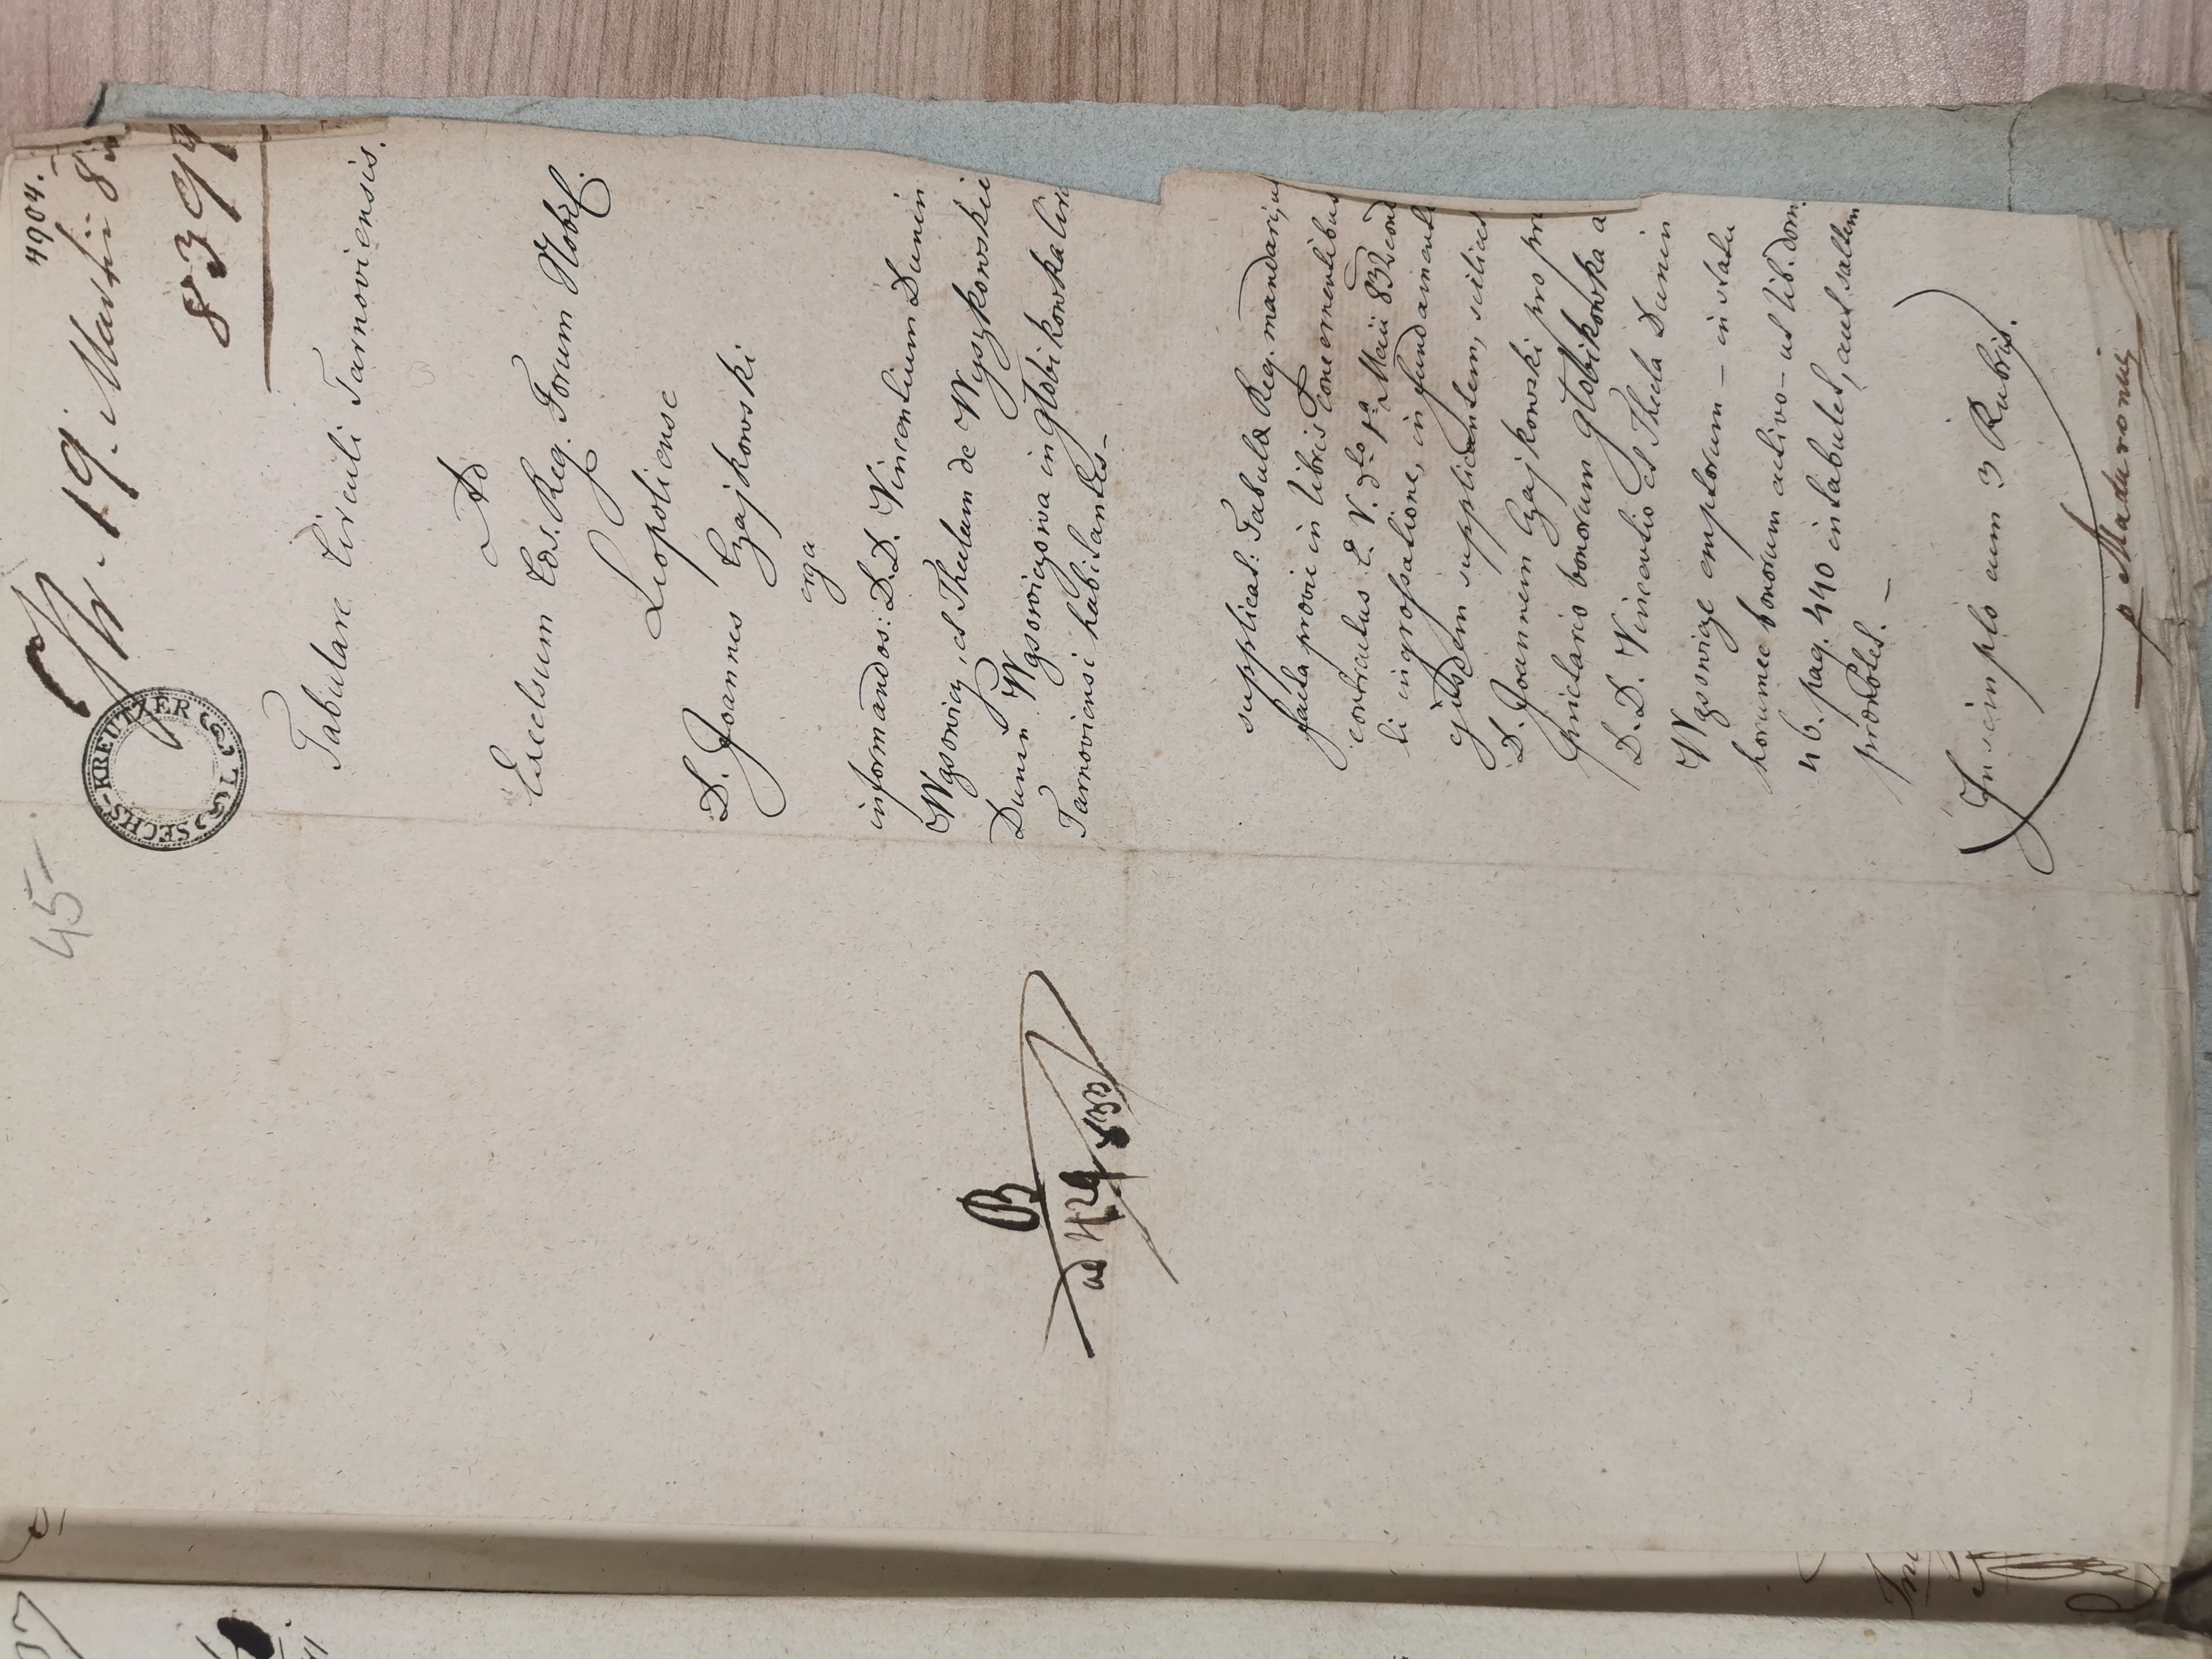 4904.
Pr. 19. Martii 83
8397
45
SECHS-KREUTZER
Tabulare Circuli Tarnoviensis.
Ad
Excelsum Cæs. Reg. Forum Nobil.
Leopoliense
D. Joannes Czajkowski
erga
informandos: D.D. Vincentium Dunin
Wąsowicz, et Theclam de Wyszkowskie
Dunin Wąsowiczowa in Głobikowka Circ
Tarnoviensi habitantes-
supplicat: Tabulæ Reg. mandari, ut
facta provie in libris concernentibus
contractus E. V. dto 1a Maii 832
di ingrossatione, in fundamento
ejusdem supplicantem, scilicet
D. Joannem Czajkowski pro pro
prietario bonorum Głobikowka a
D.D. Vincentio et Thecla Dunin
Wąsowicze emptorum - in statu
horumce bonorum activo - ut lib. dom.
46. pag. 440 intabulet, aut saltem
prænotet. -
In simplo cum 3 Rubris.
Madurowicz
B
ad 429 833